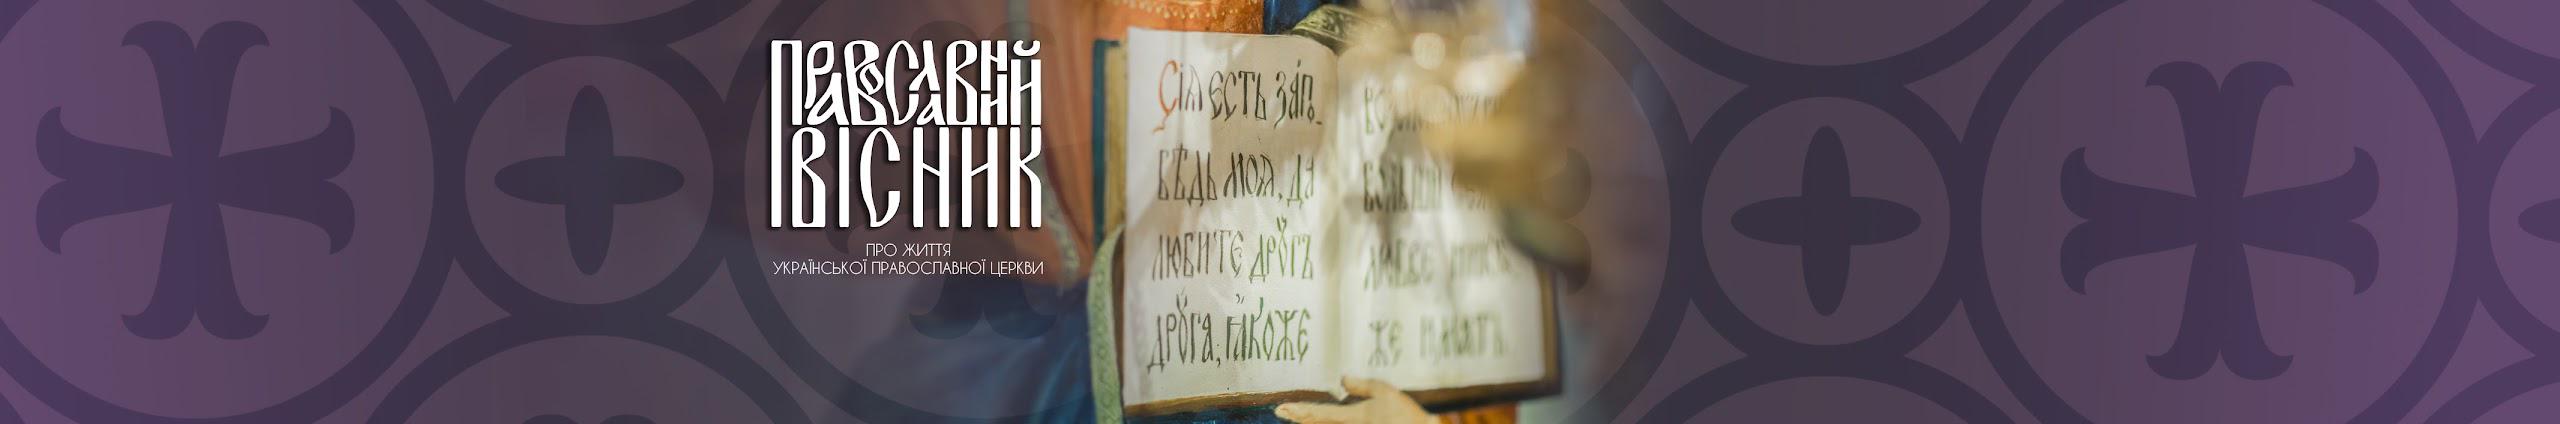 ПРАВОСЛАВНИЙ
ВІСНИК
ПРО ЖИТТЯ
УКРАЇНСЬКОЇ ПРАВОСЛАВНОЇ ЦЕРКВИ
Сїѧ єсть за́по_
вѣдь моѧ, да
любите дрꙋгъ
дрꙋга, ꙗ҆́коже
же имать.